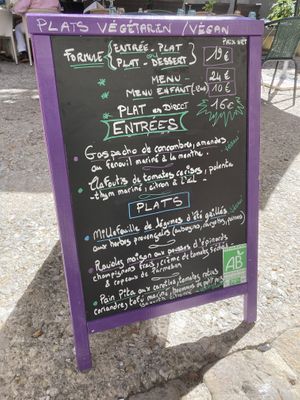 PLATS VÉGÉTARIEN / VÉGAN
PRIX NET
FORMULE ENTRÉE - PLAT
PLAT - DESSERT
19€
MENU 24€
MENU ENFANT 10€
PLAT EN DIRECT 16€
ENTRÉES
Gaspacho de concombres, amandes
au fenouil mariné à la menthe
Clafoutis de tomates cerises, polenta
thym mariné, citron &
PLATS
Millefeuille de légumes d'été grillés
aux herbes provençales (aubergines, courgettes, poivrons)
Ravioles maison aux pousses d'épinards
champignons frais, crème de tomates séchées
& copeaux de Parmesan
Pain Pita aux carottes, tomates,
coriandre, tofu mariné, houmous de petit pois
AB